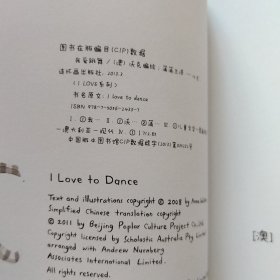 图书在版编目(CIP)数据
我爱跳舞/(澳)沃克编绘;
连环画出版社,2011.2
(I LOVE系列)
书名原文:I love to dance
ISBN 978-7-5056-
中国版本图书馆CIP数据核字
I Love to Dance
Text and illustrations copyright © 2008 by Anna
Simplified Chinese translation copyright
© 2011 by Beijing Poplar Culture Project Co., Ltd.
Copyright licensed by Scholastic Australia Pty Limited
arranged with Andrew Nurnberg
Associates International Limited.
All rights reserved.
[澳]